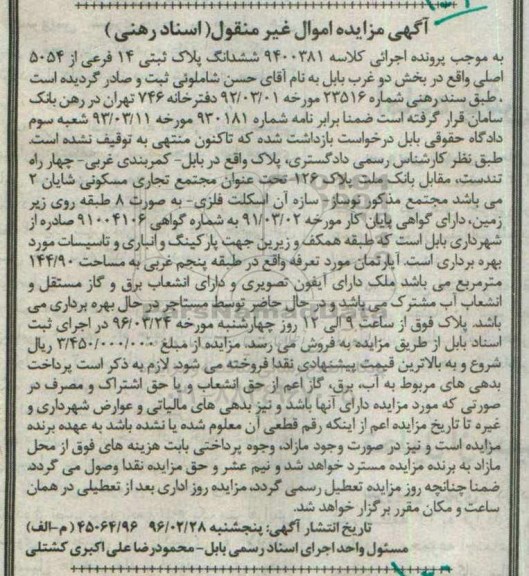 آگهی مزایده اموال غیر منقول( اسناد رهنی )
به موجب پرونده اجرائی کلاسه ۹۴۰۰۳۸۱ ششدانگ پلاک ثبتی ۱۴ فرعی از ۵۰۵۴
اصلی واقع در بخش دو غرب بابل به نام آقای حسن شاملوئی ثبت و صادر گردیده است
. طبق سند رهنی شماره ۲۳۵۱۶ مورخه ۹۲/۰۳/۰۱ دفترخانه ۷۴۶ تهران در رهن بانک
سامان قرار گرفته است ضمنا برابر نامه شماره ۹۳۰۱۸۱ مورخه ۹۳/۰۳/۱۱ شعبه سوم
دادگاه حقوقی بابل درخواست بازداشت شده که تاکنون منتهی به توقیف نشده است.
طبق نظر کارشناس رسمی دادگستری، پلاک واقع در بابل- کمربندی غربی- چهار راه
تندست، مقابل بانک ملت پلاک ۱۲۶ تحت عنوان مجتمع تجاری مسکونی شایان ۲
می باشد مجتمع مذکور نوساز- سازه آن اسکلت فلزی- به صورت ۸ طبقه روی زیر
زمین، دارای گواهی پایان کار مورخه ۹۱/۰۳/۰۲ به شماره گواهی ۹۱۰۰۴۱۰۶ صادره از
شهرداری بابل است که طبقه همکف و زیرین جهت پارکینگ و انباری و تاسیسات مورد
بهره برداری است. آپارتمان مورد تعرفه واقع در طبقه پنجم غربی به مساحت ۱۴۴/۹۰
مترمربع می باشد ملک دارای آیفون تصویری و دارای انشعاب برق و گاز مستقل و
انشعاب آب مشترک می باشد و در حال حاضر توسط مستاجر در حال بهره برداری می
باشد. پلاک فوق از ساعت ۹ الی ۱۲ روز چهارشنبه مورخه ۹۶/۰۳/۲۴ در اجرای ثبت
اسناد بابل از طریق مزایده به فروش می رسد. مزایده از مبلغ ۳/۴۵۰/۰۰۰/۰۰۰ ریال
شروع و به بالاترین قیمت پیشنهادی نقدا فروخته می شود. لازم به ذکر است پرداخت
بدهی های مربوط به آب، برق، گاز اعم از حق انشعاب و یا حق اشتراک و مصرف در
صورتی که مورد مزایده دارای آنها باشد و نیز بدهی های مالیاتی و عوارض شهرداری و
غیره تا تاریخ مزایده اعم از اینکه رقم قطعی آن معلوم شده یا نشده باشد به عهده برنده
مزایده است و نیز در صورت وجود مازاد، وجوه پرداختی بابت هزینه های فوق از محل
مازاد به برنده مزایده مسترد خواهد شد و نیم عشر و حق مزایده نقدا وصول می گردد.
ضمنا چنانچه روز مزایده تعطیل رسمی گردد، مزایده روز اداری بعد از تعطیلی در همان
ساعت و مکان مقرر برگزار خواهد شد.
تاریخ انتشار آگهی: پنجشنبه ۹۶/۰۲/۲۸ ۴۵۰۶۴/۹۶ ( م-الف)
مسئول واحد اجرای اسناد رسمی بابل- محمودرضا علی اکبری کشتلی